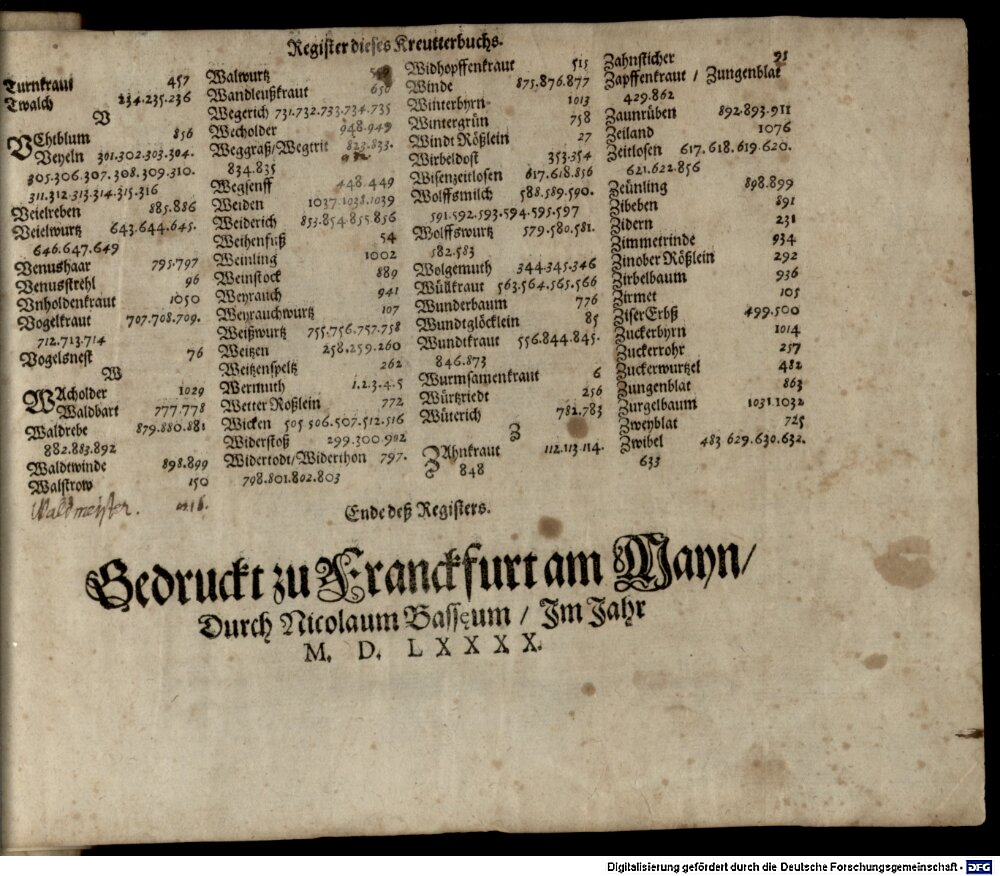 Register dieses Kreutterbuchs.
Turnkraut 457
Twalch 234.235.236
V
VChtblum 856
Veyeln 301.302.303.304.
305.306.307.308.309.310.
311.312.313.314.315.316
Veielreben 885.886
Veielwurtz 643.644.645.
646.647.649
Venushaar 795.797
Venusstrehl 96
Vnholdenkraut 1050
Vogelkraut 707.708.709.
712.713.714
Vogelsnest 76
W
WAcholder 1029
Waldbart 777.778
Waldrebe 879.880.881
882.883.892
Waldtwinde 898.899
Walstrow 150
Waldmeister.
Walwurtz
Wandleußkraut 650
Wegerich 731.732.733.734.735
Wecholder 948.949
Weggraß/Wegtrit 823.833.
834.835
Wegsenff 448.449
Weiden 1037.1038.1039
Weiderich 853.854.855.856
Weihenfuß 54
Weinling 1002
Weinstock 889
Weyrauch 941
Weyrauchwurtz 107
Weißwurtz 755.756.757.758
Weitzen 258.259.260
Weitzenspeltz 262
Wermuth 1.2.3.4.5
Wetter Roßlein 772
Wicken 505.506.507.512.516
Widerstoß 299.300.902
Widertodt/Widerthon 797.
798.801.802.803
Widhopffenkraut 515
Winde 875.876.877
Winterbyrn 1013
Wintergrün 758
Windt Rößlein 27
Wirbeldost 353.354
Wisenzeitlosen 617.618.856
Wolffsmilch 588.589.590.
591.592.593.594.595.597
Wolffswurtz 579.580.581.
582.583
Wolgemuth 344.345.346
Wüllkraut 563.564.565.566
Wunderbaum 776
Wundtglöcklein 85
Wundtkraut 556.844.845.
846.873
Wurmsamenkraut 6
Würtzriedt 256
Wüterich 782.783
Z
ZAhnkraut 112.113.114.
848
Zahnsticher 95
Zapffenkraut / Zungenblat
429.862
Zaunrüben 892.893.911
Zeiland 1076
Zeitlosen 617.618.619.620.
621.622.856
Zeünling 898.899
Zibeben 891
Zidern 231
Zimmetrinde 934
Zinober Rößlein 292
Zirbelbaum 936
Zirmet 105
Ziser Erbß 499.500
Zuckerbyrn 1014
Zuckerrohr 257
Zuckerwurtzel 482
Zungenblat 863
Zurgelbaum 1031.1032
Zweyblat 725
Zwibel 483 629.630.632.
633
Ende deß Registers.
Gedruckt zu Franckfurt am Mayn/
Durch Nicolaum Bassęum / Im Jahr
M. D. L X X X X.
Digitalisierung gefördert durch die Deutsche Forschungsgemeinschaft - DFG